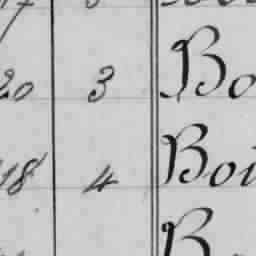 20 3 Bo
18 4 Boi
B